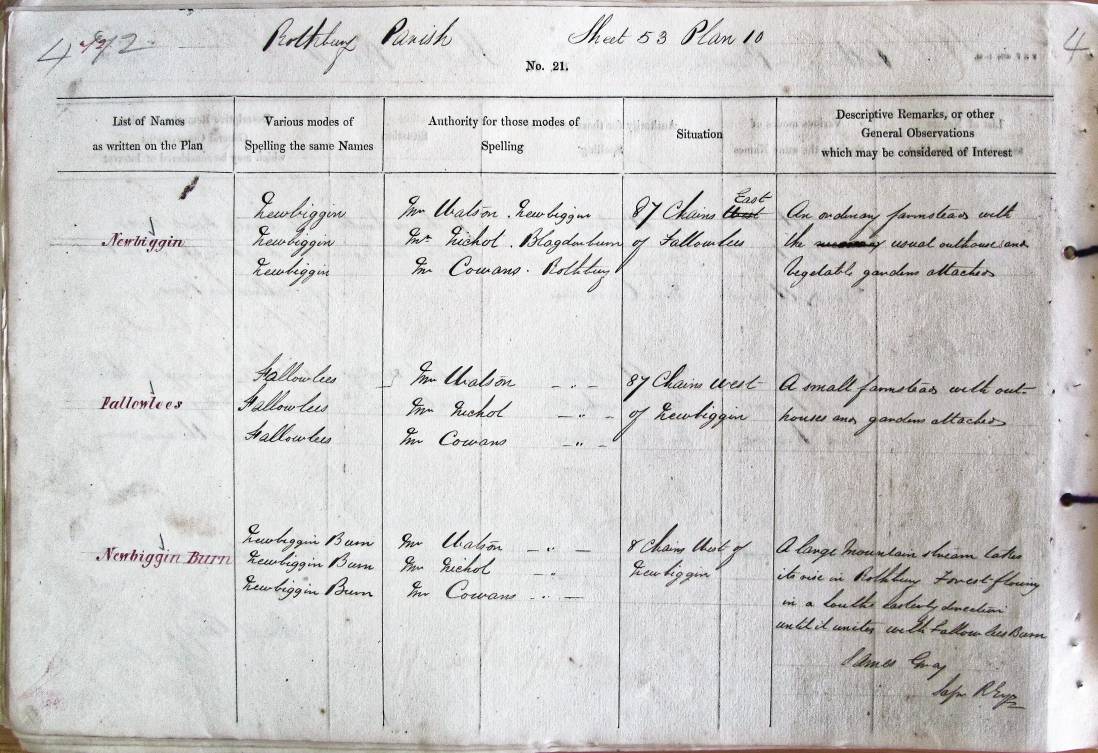 4 Rothbury Parish Sheet 53 Plan 10 4
No. 21.
List of Names
as written on the Plan
Various modes of
Spelling the same Names
Authority for those modes of
Spelling
Situation
Descriptive Remarks, or other
General Observations
which may be considered of Interest
Newbiggin
Newbiggin
Newbiggin
Newbiggin
Mr Watson . Newbiggin
Mr Nichol . Blagdonburn
Mr Cowans . Rothbury
East
87 Chains West
of Fallowlees
An ordinary farmstead with
the usual outhouses and
Vegetable gardens attached
Fallowlees
Fallowlees
Fallowlees
Fallowlees
Mr Watson — „ —
Mr Nichol — „ —
Mr Cowans — „ —
87 Chains West
of Newbiggin
A small farmstead with out-
houses and gardens attached
Newbiggin Burn
Newbiggin Burn
Newbiggin Burn
Newbiggin Burn
Mr Watson — „ —
Mr Nichol — „
Mr Cowans — „ —
8 Chains West of
Newbiggin
A large Mountain stream takes
its rise in Rothbury Forest flowing
in a South Easterly direction
until it unites with Fallowlees Burn
James Gray
Sapr R Eng